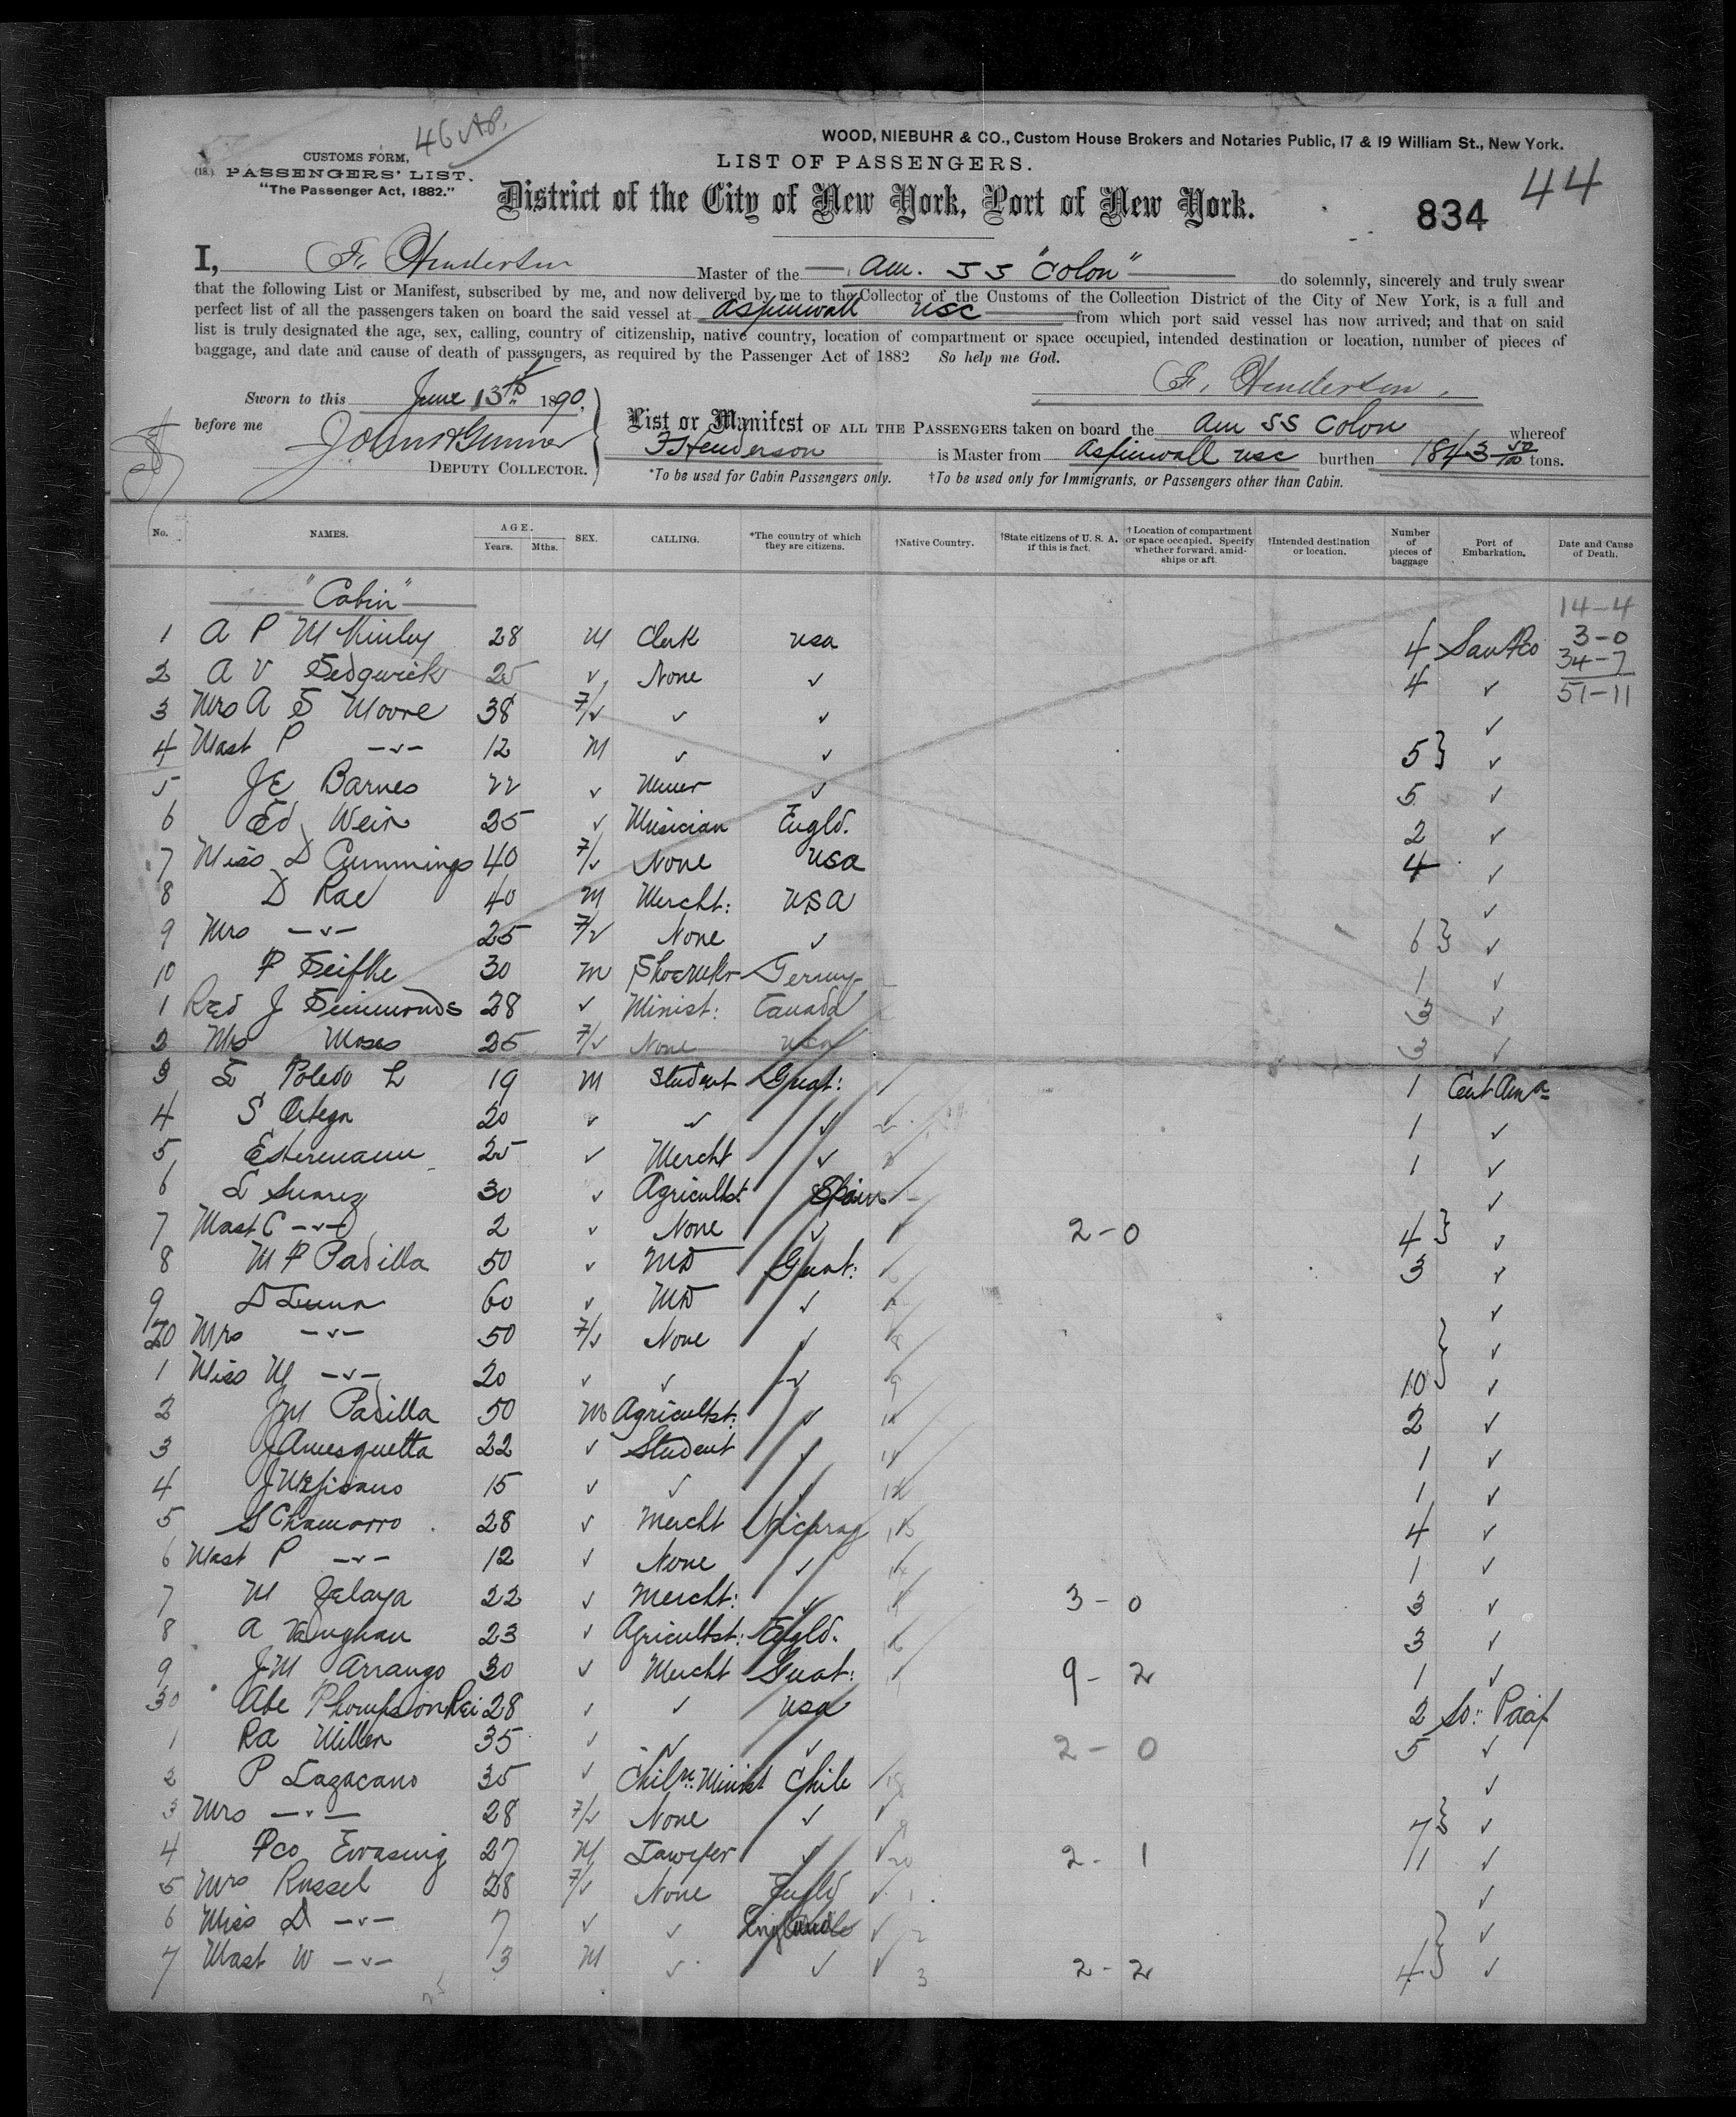 46
WOOD, NIEBUHR & CO., Custom House Brokers and Notaries Public, 17 & 19 William St., New York.
CUSTOMS FORM,
LIST OF PASSENGERS.
(18.) PASSENGERS' LIST.
"The Passenger Act, 1882."
District of the City of New York, Port of New York.
834
44
I, F. Henderson Master of the Am. SS "Colon" do solemnly, sincerely and truly swear
that the following List or Manifest, subscribed by me, and now delivered by me to the Collector of the Customs of the Collection District of the City of New York, is a full and
perfect list of all the passengers taken on board the said vessel at Aspinwall USC from which port said vessel has now arrived; and that on said
list is truly designated the age, sex, calling, country of citizenship, native country, location of compartment or space occupied, intended destination or location, number of pieces of
baggage, and date and cause of death of passengers, as required by the Passenger Act of 1882 So help me God.
F. Henderson
Sworn to this June 13th 1890.
before me
DEPUTY COLLECTOR.
List or Manifest OF ALL THE PASSENGERS taken on board the Am SS Colon whereof
F Henderson is Master from Aspinwall USC burthen 1843 50/100 tons.
*To be used for Cabin Passengers only. †To be used only for Immigrants, or Passengers other than Cabin.
No. NAMES. AGE. Years. Mths. SEX. CALLING. *The country of which they are citizens. †Native Country. †State citizens of U. S. A. if this is fact. †Location of compartment or space occupied. Specify whether forward, amidships or aft. †Intended destination or location. Number of pieces of baggage Port of Embarkation. Date and Cause of Death.
"Cabin" 14-4
1 A P McKinley 28 M Clerk USA 4 San Fco 3-0
2 A V Sedgwick 25 ✓ None ✓ 4 ✓ 34-7
3 Mrs A S Moore 38 F/✓ ✓ ✓ ✓ 51-11
4 Mast P -✓- 12 M ✓ ✓ 5} ✓
5 JE Barnes 22 ✓ Miner ✓ 5 ✓
6 Ed Weir 25 ✓ Musician Engld. 2 ✓
7 Miss D Cummings 40 F/✓ None USA 4 ✓
8 D Rae 40 M Mercht: USA ✓
9 Mrs -✓- 25 F/✓ None ✓ 6} ✓
10 F Seifke 30 M Shoemkr Germy 1 ✓
1 Revd J Simmonds 28 ✓ Minist: Canada 3 ✓
2 Mrs Moses 25 F/✓ None USA 3 ✓
3 Toledo L 19 M Student Guat: 1 Cent Ama
4 S Ortega 20 ✓ ✓ ✓ 1 ✓
5 Estermann 25 ✓ Mercht ✓ 1 ✓
6 L Suarez 30 ✓ Agricultst Spain ✓
7 Mast C -✓- 2 ✓ None ✓ 2-0 4} ✓
8 M F Padilla 50 ✓ MD Guat: 3 ✓
9 D Luna 60 ✓ MD ✓ ✓
20 Mrs -✓- 50 F/✓ None ✓ ✓
1 Miss M -✓- 20 ✓ ✓ ✓ 10} ✓
2 JM Padilla 50 M Agricultst: ✓ 2 ✓
3 J Amesquetta 22 ✓ Student ✓ 1 ✓
4 15 ✓ ✓ ✓ 1 ✓
5 S Chamorro 28 ✓ Mercht Nicarag 4 ✓
6 Mast P -✓- 12 ✓ None ✓ 1 ✓
7 M Zelaya 22 ✓ Mercht: ✓ 3-0 3 ✓
8 A Vaughan 23 ✓ Agricultst: Engld. 3 ✓
9 JM Arrango 30 ✓ Mercht Guat: 9-2 1 ✓
30 Abe Thompson 28 ✓ ✓ USA 2 So: Pacif
1 RA Miller 35 ✓ ✓ ✓ 2-0 5 ✓
2 P Lazacano 35 ✓ Chiln. Minist Chile ✓
3 Mrs -✓- 28 F/✓ None ✓ 7} ✓
4 Fco 27 M Lawyer ✓ 2-1 11 ✓
5 Mrs Russel 28 F/✓ None Engld ✓
6 Miss D -✓- 7 ✓ ✓ England ✓
7 Mast W -✓- 3 M ✓ ✓ 2-2 4} ✓